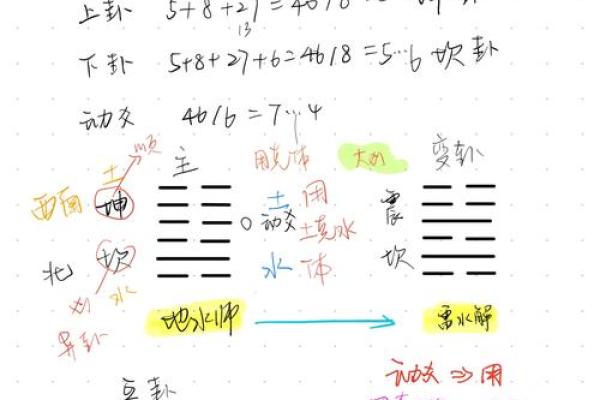 上卦 5+8+27=40/8
13
下卦 5+8+27+6=46/8=5…6 坎卦
动爻 46/6=7…4
土 顺 主 用克体 大凶 变卦
西南 坤 土 用 震
动爻 土克水
北 坎 水 体 坎
凶 水
异卦
地水师 雷水解
互卦
动爻 ⇒ 用